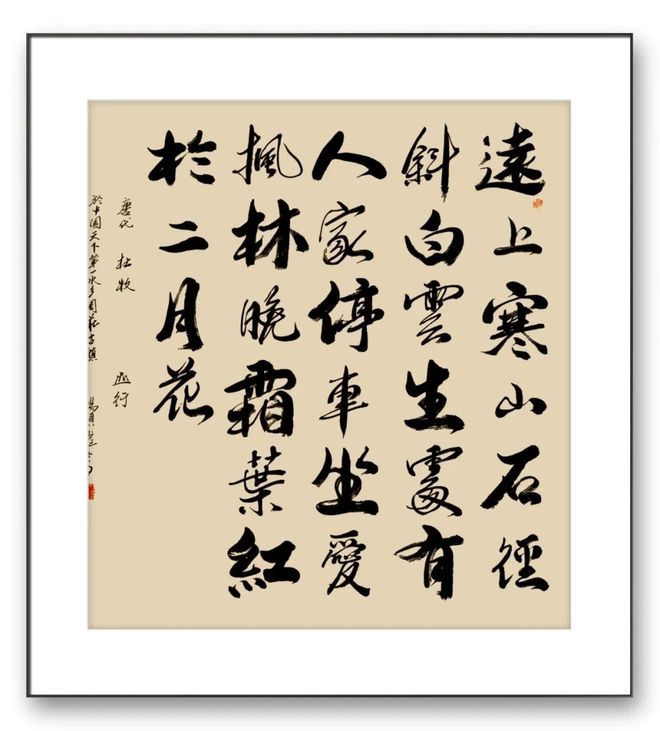 遠上寒山石徑
斜白雲生處有
人家停車坐愛
楓林晚霜葉紅
於二月花
唐代 杜牧 山行
於中國天下第一水乡周莊古鎮